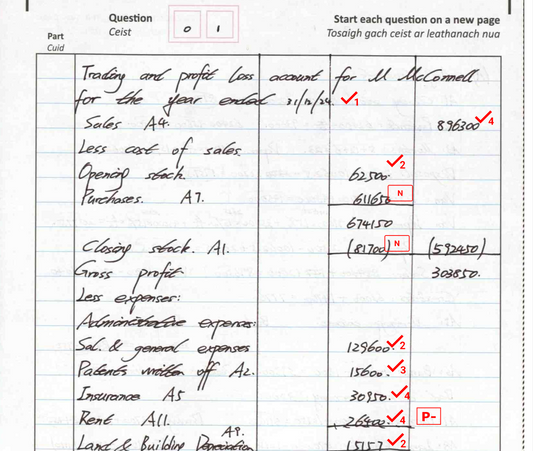 Question Start each question on a new page
Ceist 0 1 Tosaigh gach ceist ar leathanach nua
Part
Cuid
Trading and profit loss account for M McConnell
for the year ended 31/12/24. 1
Sales A4. 896300 4
Less cost of sales.
Opening stock. 62500. 2
Purchases. A7. 611650 N
674150
Closing stock. A1. (81700) N (592450)
Gross profit 303850.
Less expenses:
Administrative expenses:
Sal. & general expenses 129600 2
Patents written off A2. 15600 3
Insurance A5 30950. 4
Rent A11. 26400 4 P-
Land & Building Depreciation A9. 15157 2